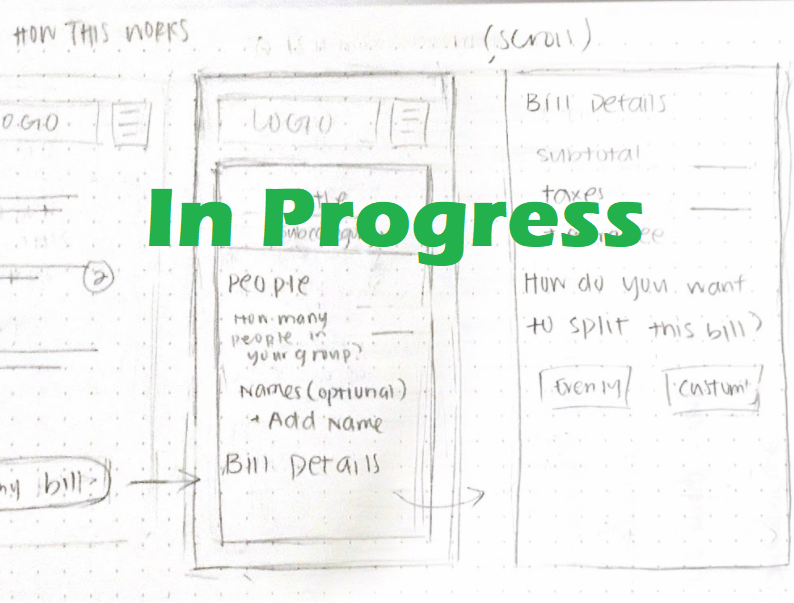 HOW THIS WORKS
(scroll)
LOGO
2
my bill
LOGO
In Progress
People
How many
people in
your group?
Names (optional)
+ Add Name
Bill Details
Bill Details
subtotal
taxes
How do you want
to split this bill?
Evenly
Custom